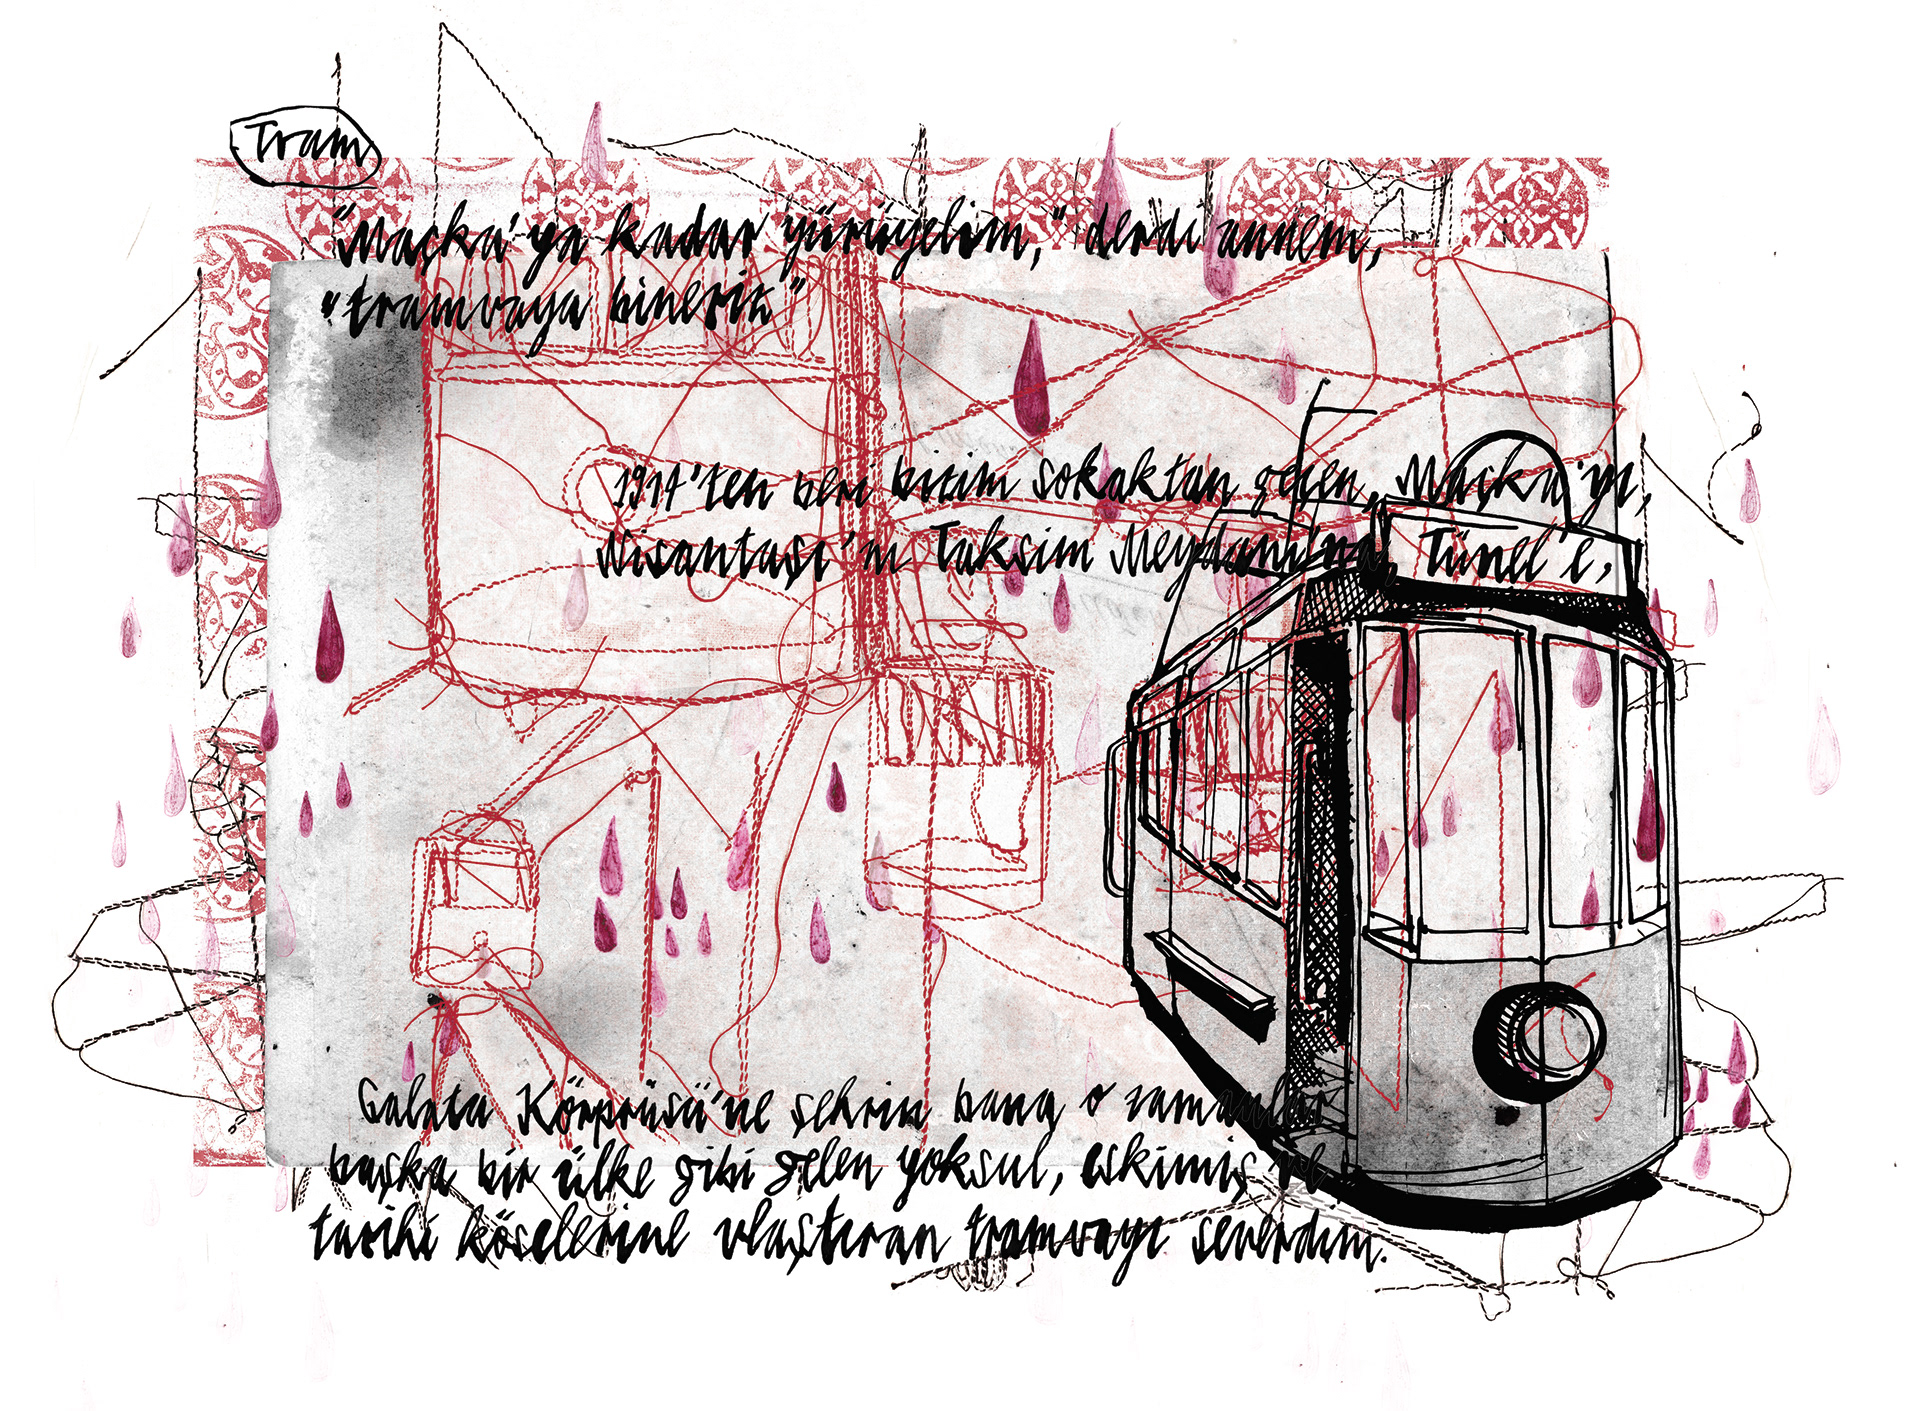 Tram
"Maçka'ya kadar yürüyelim," derdi annem,
"tramvaya bineriz"
1914'ten beri bizim sokaktan geçen, Maçka'yı,
Nisantaşı'nı Taksim Meydanı'na, Tünel'e,
Galata Körprüsü'ne şehrin bana o zamanlar
başka bir ülke gibi gelen yoksul, eskimiş ve
tarihi köselerine ulaştıran tramvayı severdim.